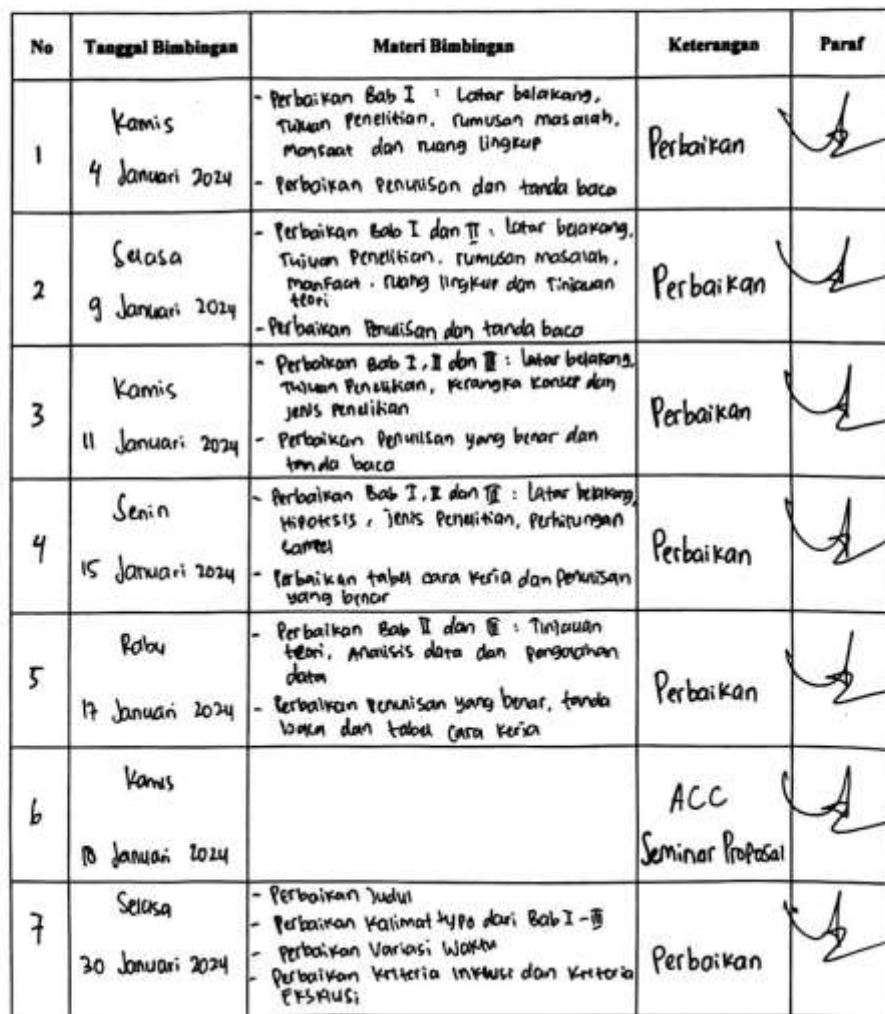 No Tanggal Bimbingan Materi Bimbingan Keterangan Paraf
1
Kamis
4 Januari 2024
- Perbaikan Bab I : Latar belakang,
Tujuan Penelitian, rumusan masalah,
manfaat dan ruang lingkup
- Perbaikan Penulisan dan tanda baca
Perbaikan
2
Selasa
9 Januari 2024
- Perbaikan Bab I dan II : latar belakang,
Tujuan Penelitian, rumusan masalah,
manfaat, ruang lingkup dan Tinjauan
teori
- Perbaikan Penulisan dan tanda baca
Perbaikan
3
Kamis
11 Januari 2024
- Perbaikan Bab I, II dan III : latar belakang,
Tujuan Penelitian, kerangka konsep dan
jenis penelitian
- Perbaikan Penulisan yang benar dan
tanda baca
Perbaikan
4
Senin
15 Januari 2024
- Perbaikan Bab I, II dan III : latar belakang,
Hipotesis, jenis Penelitian, Perhitungan
sampel
- Perbaikan tabel cara kerja dan penulisan
yang benar
Perbaikan
5
Rabu
17 Januari 2024
- Perbaikan Bab II dan III : Tinjauan
teori, Analisis data dan pengolahan
data
- Perbaikan penulisan yang benar, tanda
baca dan tabel cara kerja
Perbaikan
6
Kamis
18 Januari 2024
ACC
Seminar Proposal
7
Selasa
30 Januari 2024
- Perbaikan Judul
- Perbaikan Kalimat typo dari Bab I - III
- Perbaikan Variasi Waktu
- Perbaikan Kriteria Inklusi dan Kriteria
Eksklusi
Perbaikan